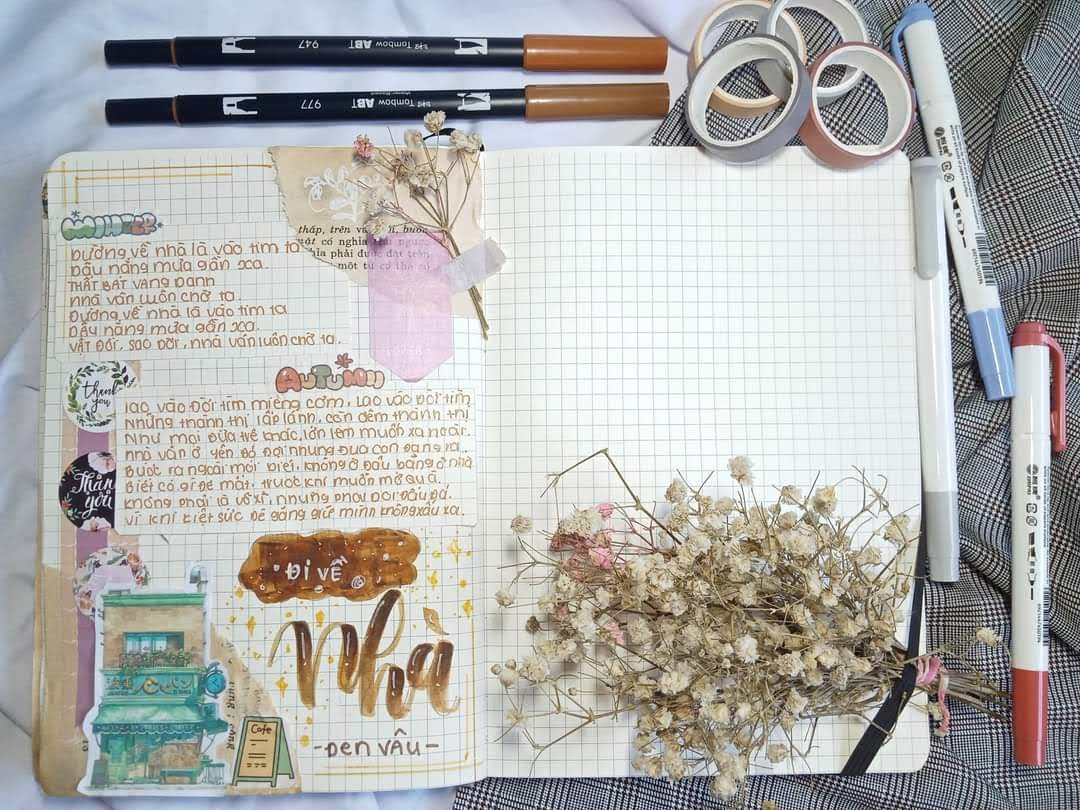 947 Tombow ABT
977 Tombow ABT
WINTER
Đường về nhà là vào tim ta
Dẫu nắng mưa gần xa
THẤT BÁT VANG DANH
nhà vẫn luôn chờ ta
Đường về nhà là vào tim ta
Dẫu nắng mưa gần xa.
VẬT ĐỔI, SAO DỜI, nhà vẫn luôn chờ ta.
thấp, trên v
có nghĩa
phải được đặt trên
một từ có thể có
AUTUMN
Lao vào đời tìm miếng cơm, Lao vào đời tìm
Những thành thị lấp lánh, còn đêm thành thị
Như mọi đứa trẻ khác, lớn lên muốn xa ngoài.
nhà vẫn ở yên đó đợi nhưng đứa con đang xa.
Bước ra ngoài mới biết, không ở đâu bằng ở nhà
Biết có gì để mất, trước khi muốn mở quà.
Không phải là võ sĩ, nhưng phải đời đấu đá.
Vì khi kiệt sức để gắng giữ mình không xấu xa.
thank you
Thank you
ĐI VỀ
nhà
-ĐEN VÂU-
Cafe